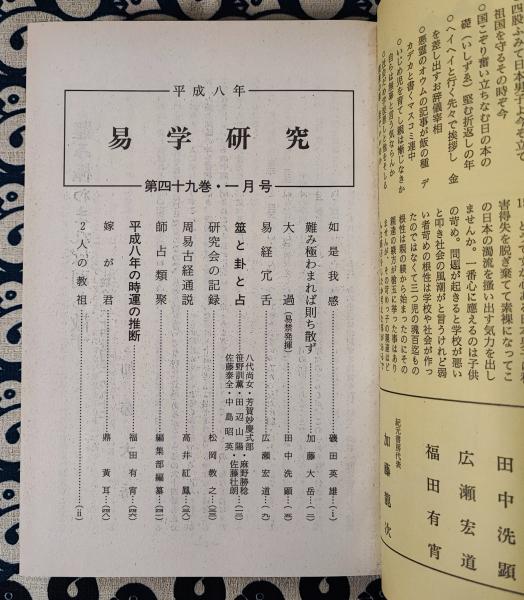 平成八年
易学研究
第四十九巻・一月号
如是我感 磯田英雄…(i)
難み極まれば則ち散ず 加藤大岳…(二)
大過(易禁発揮) 田中洗顕
易経冗舌 広瀬宏道…(九)
筮と卦と占 八代尚女・芳賀妙慶式部・麻野勝稔
笹野訓薫・田辺山陽・佐藤壮朗
佐藤泰全・中島昭英
研究会の記録 松岡教之
周易古経通説 高井紅鳳
師占類聚 編集部編纂
平成八年の時運の推断 福田有宵
嫁が君 鼎黄耳
2人の教祖 …(ii)
四股ふみて日本男子は今ぞ立て
祖国を守るその時ぞ今
○国こぞり奮い立ちなむ日の本の
礎(いしずゑ)堅む折返しの年
○ヘイヘイと行く先々で挨拶し 金
を差し出すお辞儀宰相
○悪霊のオウムの記事が飯の種 デ
カデカと書くマスコミ連中
○いじめ児を育てし親は慚じなきか
害得失を脱ぎ棄てて素裸になってこ
の日本の濁流を掻い出す気力を出し
ませんか。一番心に應えるのは子供
の苛め。問題が起きると学校が悪い
と叩き社会の風潮がと言うけれど弱
い者苛めの根性は学校や社会が作っ
たのではなくて三つ児の魂百迄もの
根性は親の躾から始まったのにその
田中洗顕
広瀬宏道
福田有宵
紀元書房代表
加藤龍次